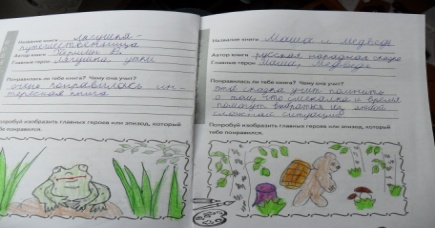 Название книги Лягушка-
путешественница
Автор книги Гаршин В.
Главные герои Лягушка, утки
Понравилась ли тебе книга? Чему она учит?
очень понравилась ин-
тересная книга
Попробуй изобразить главных героев или эпизод, который
тебе понравился.
Название книги Маша и медведь
Автор книги русская народная сказка
Главные герои Маша, Медведь
Понравилась ли тебе книга? Чему она учит?
эта сказка учит
о том, что смекалка и
помогут выбраться из любой
сложной ситуации
Попробуй изобразить главных героев или эпизод, который
тебе понравился.